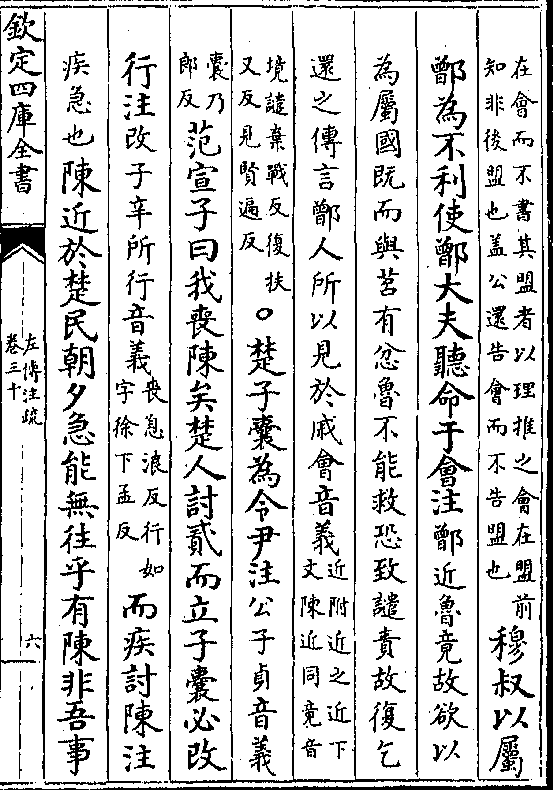 在會而不書其盟者以理推之會在盟前
知非後盟也蓋公還告會而不告盟也
穆叔以屬
鄫為不利使鄫大夫聽命于會注鄫近魯竟故欲以
為屬國既而與莒有忿魯不能救恐致譴責故復乞
還之傳言鄫人所以見於戚會音義
近附近之近下
文陳近同竟音
境譴棄戰反復扶
又反見賢遍反
○楚子囊為令尹注公子貞音義
囊乃
郎反
范宣子曰我喪陳矣楚人討貳而立子囊必改
行注改子辛所行音義
喪息浪反行如
字徐下孟反
而疾討陳注
疾急也陳近於楚民朝夕急能無往乎有陳非吾事
欽定四庫全書
左傳注疏
卷三十
六